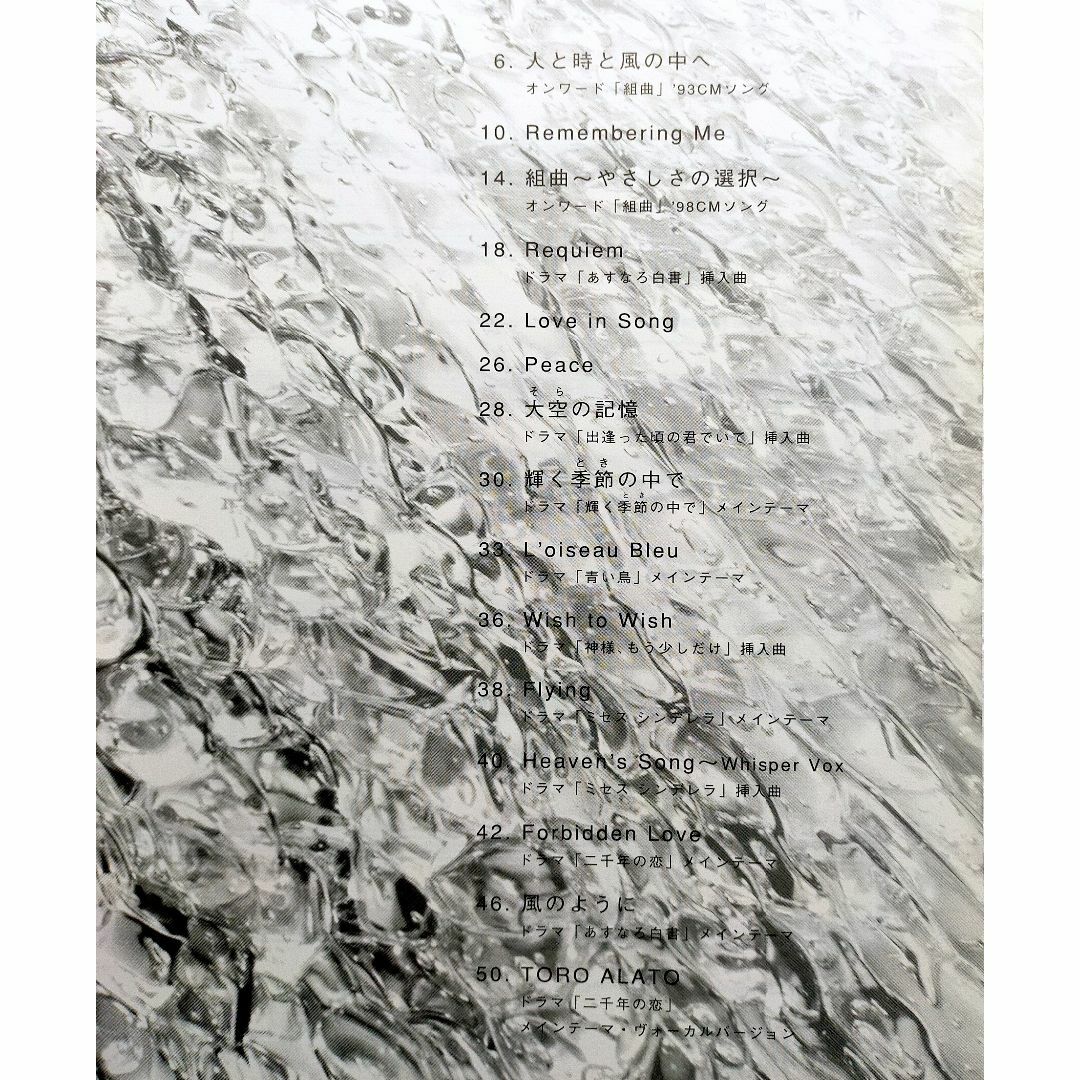 6. 人と時と風の中へ
オンワード「組曲」'93CMソング
10. Remembering Me
14. 組曲〜やさしさの選択〜
オンワード「組曲」'98CMソング
18. Requiem
ドラマ「あすなろ白書」挿入曲
22. Love in Song
26. Peace
そら
28. 大空の記憶
ドラマ「出逢った頃の君でいて」挿入曲
とき
30. 輝く季節の中で
とき
ドラマ「輝く季節の中で」メインテーマ
33. L'oiseau Bleu
ドラマ「青い鳥」メインテーマ
36. Wish to Wish
ドラマ「神様、もう少しだけ」挿入曲
38. Flying
ドラマ「ミセス シンデレラ」メインテーマ
40. Heaven's Song〜Whisper Vox
ドラマ「ミセス シンデレラ」挿入曲
42. Forbidden Love
ドラマ「二千年の恋」メインテーマ
46. 風のように
ドラマ「あすなろ白書」メインテーマ
50. TORO ALATO
ドラマ「二千年の恋」
メインテーマ・ヴォーカルバージョン